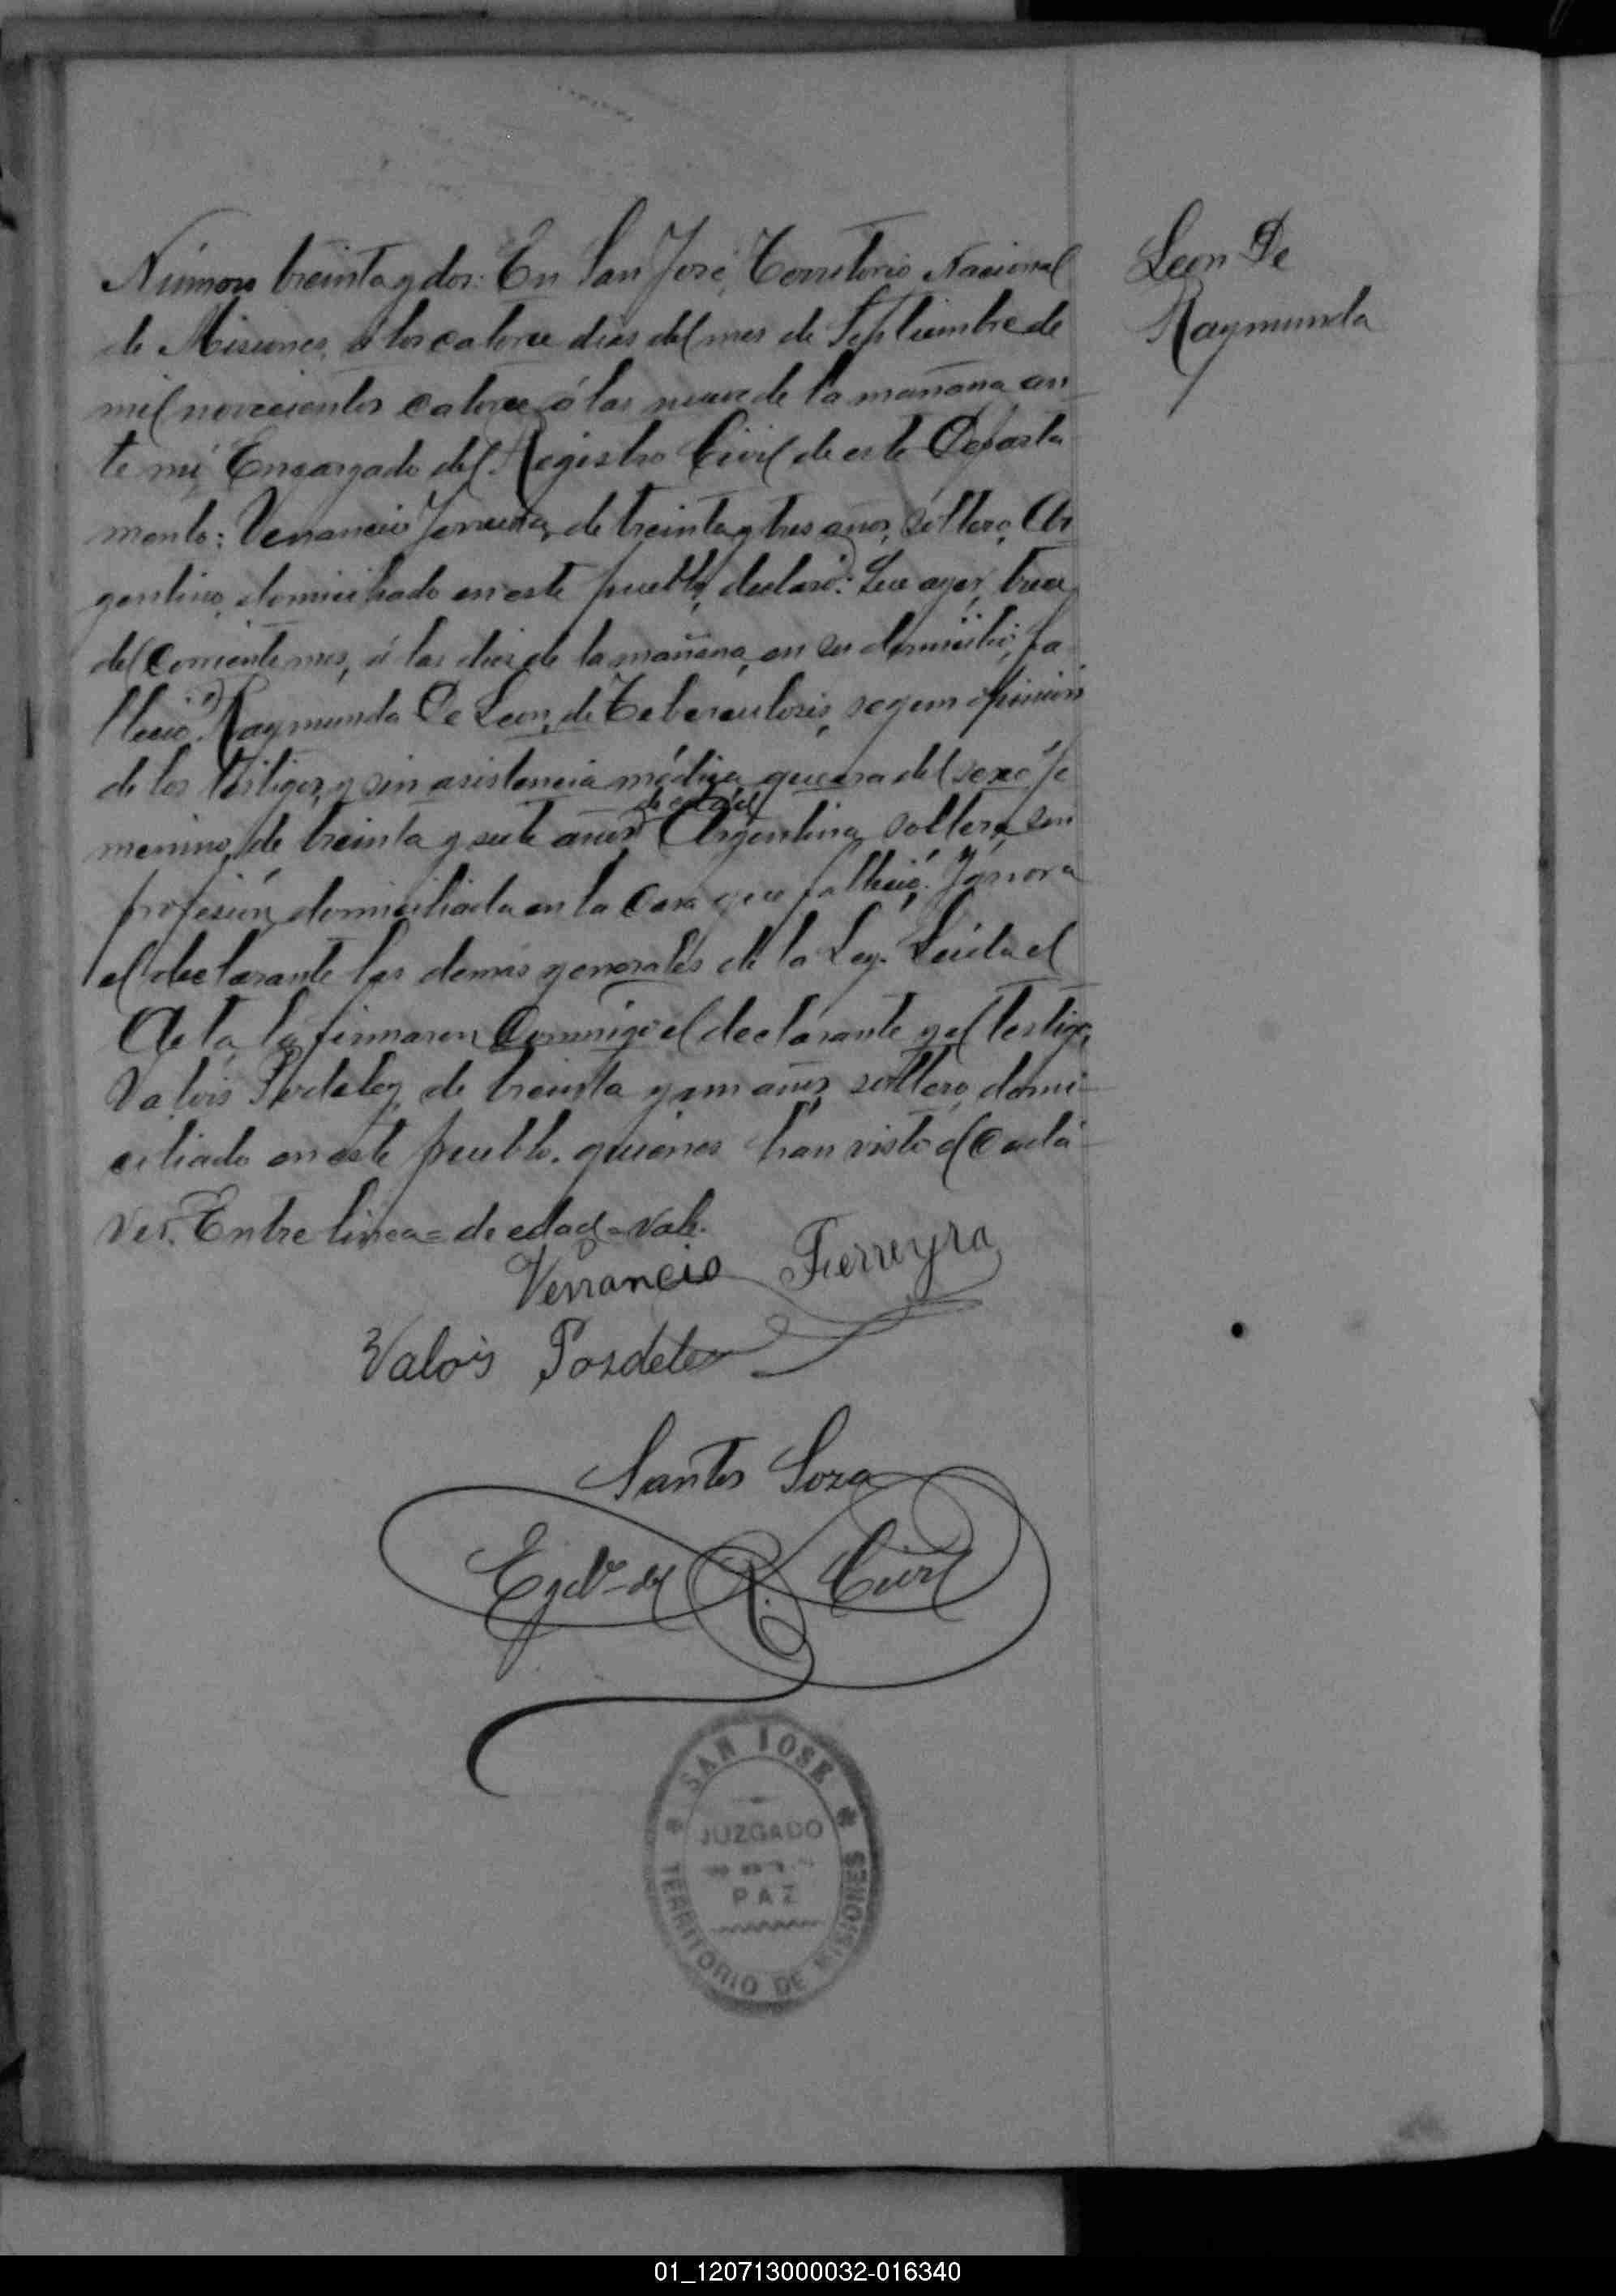 Leon De
Raymunda
Número treinta y dos: En San José, Territorio Nacional
de Misiones, á los catorce dias del mes de Septiembre de
mil novecientos catorce á las nueve de la mañana an-
te mi Encargado del Registro Civil de este Departa
mento: Venancio Ferreira, de treinta y tres años, soltero, Ar
gentino, domiciliado en este pueblo, declaró: Que ayer, trece
del corriente mes, á las diez de la mañana, en su domicilio, fa
lleció Raymunda De Leon, de Teberculosis, segun opinion
de los testigos, y sin asistencia médica, que era del sexo fe
de edad
menino, de treinta y siete años Argentina, soltera, sin
profesión, domiciliada en la casa que falleció. Ygnora
el declarante las demas generales de la Ley. Leída el
Acta, la firmaron conmigo el declarante y el testigo,
Valois de treinta y un años, soltero, domi-
ciliado en este pueblo. quienes han visto el cadá-
ver. Entre linea = de edad = vale.
Venancio Fierreyra
Valois
Santos Soza
Egdo. del R. Civil
SAN JOSE
JUZGADO
PAZ
TERRITORIO DE MISIONES
01_120713000032-016340